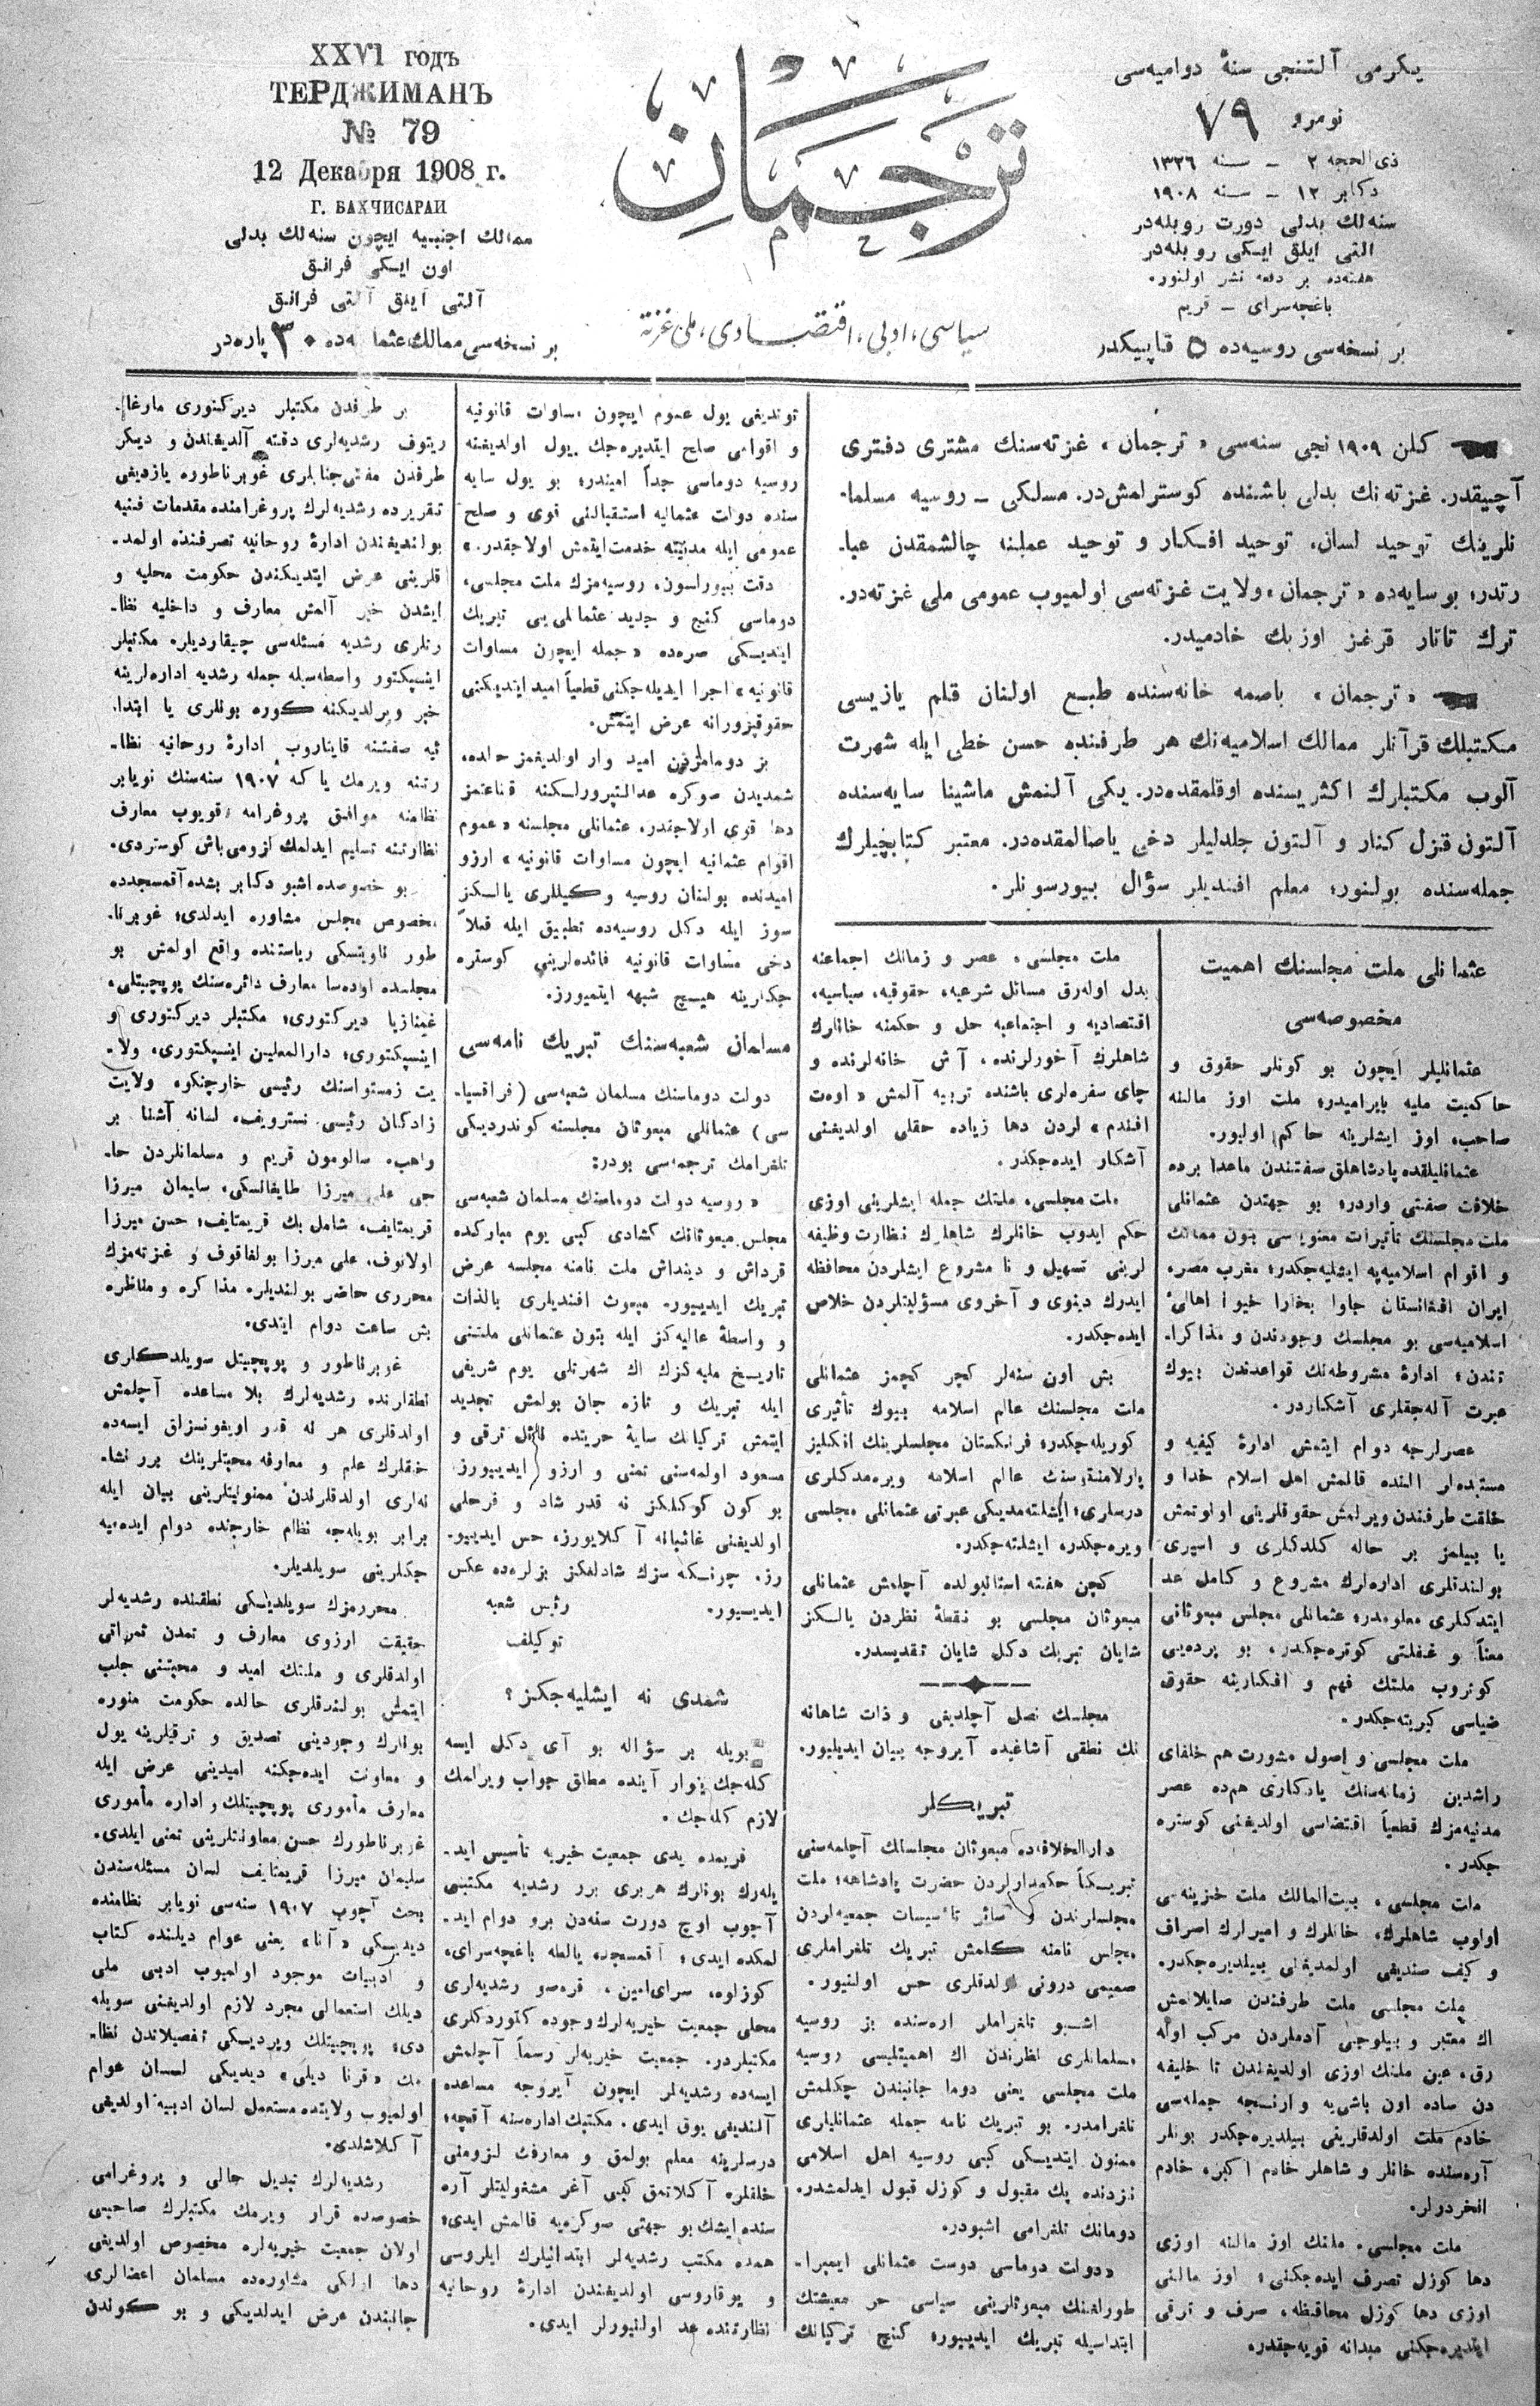 XXVI годъ
ТЕРДЖИМАНЪ
№ 79
12 Декабря 1908 г.
Г. БАХЧИСАРАИ
ممالك اجنبيه ايچون سنه‌لك بدلى
اون ايكى فرانق
آلتى آيلق آلتى فرانق
بر نسخه‌سى ممالك عثمانيه‌ده ٣٠ پاره‌در
ترجمان
سياسى، ادبى، اقتصادى، ملى غزته
يكرمى آلتنجى سنهٔ دواميه‌سى
نومرو ٧٩
ذى الحجه ٢ – سنه ١٣٢٦
دكابر ١٢ – سنه ١٩٠٨
سنه‌لك بدلى دورت روبله‌در
التى ايلق ايكى روبله‌در
هفته‌ده بر دفعه نشر اولنور.
باغچه‌سراى – قريم
بر نسخه‌سى روسيه‌ده ٥ قاپيكدر
كلن ١٩٠٩ نجى سنه‌سى «ترجمان» غزته‌سنك مشترى دفترى
آچيقدر. غزته‌نك بدلى باشنده كوسترلمش‌در. مسلكى – روسيه مسلما-
نلرينك توحيد لسان، توحيد افكار و توحيد عملنه چالشمقدن عبا-
رتدر؛ بو سايه‌ده «ترجمان» ولايت غزته‌سى اولميوب عمومى ملى غزته‌در.
ترك تاتار قرغز اوزبك خادميدر.
«ترجمان» باصمه خانه‌سنده طبع اولنان قلم يازيسى
مكتبلك قرآنلر ممالك اسلاميه‌نك هر طرفنده حسن خطى ايله شهرت
آلوب مكتبلرك اكثريسنده اوقلمقده‌در. يكى آلنمش ماشينا سايه‌سنده
آلتون قزل كنار و آلتون جلدليلر دخى ياصالمقده‌در. معتبر كتابچيلرك
جمله‌سنده بولنور؛ معلم افنديلر سؤال بيورسونلر.
عثمانلى ملت مجلسنك اهميت
مخصوصه‌سى
عثمانليلر ايچون بو كونلر حقوق و
حاكميت مليه بايراميدر؛ ملت اوز مالنه
صاحب، اوز ايشلرينه حاكم اوليور.
عثمانليلقده پادشاهلق صفتندن ماعدا برده
خلافت صفتى واردر؛ بو جهتدن عثمانلى
ملت مجلسنك تأثيرات معنويه‌سى بتون ممالك
و اقوام اسلاميه‌يه ايشليه‌جكدر؛ مغرب مصر،
ايران افغانستان جاوا بخارا خيوا اهالئ
اسلاميه‌سى بو مجلسك وجودندن و مذاكرا-
تندن؛ ادارهٔ مشروطه‌نك قواعدندن بيوك
عبرت آله‌جقلرى آشكاردر.
عصرلرجه دوام ايتمش ادارهٔ كيفيه و
مستبده‌لر النده قالمش اهل اسلام خدا و
خلقت طرفندن ويرلمش حقوقلرينى اونوتمش
يا بيلمز بر حاله كلدكلرى و اسيرى
بولندقلرى اداره‌لرك مشروع و كامل عد
ايتدكلرى معلومدر؛ عثمانلى مجلس مبعوثانى
معناً و غفلتى كوتره‌جكدر، بو پرده‌يى
كوتروب ملتك فهم و افكارينه حقوق
ضياسى كيريته‌جكدر.
ملت مجلسى و اصول مشورت هم خلفاى
راشدين زمانه‌سنك يادكارى هم‌ده عصر
مدنيه‌مزك قطعياً اقتضاسى اولديغنى كوستره
جكدر.
ملت مجلسى، بيت‌المالك ملت خزينه‌سى
اولوب شاهلرك، خانلرك و اميرلرك اسراف
و كيف صنديغى اولمديغنى بيلديره‌جكدر.
ملت مجلسى ملت طرفندن صايلانمش
اك معتبر و بيلوجى آدملردن مركب اوله
رق، عين ملتك اوزى اولديغندن تا خليفه
دن ساده اون باشى‌يه وارنجه جمله‌سى
خادم ملت اولدقلرينى بيلديره‌جكدر بونلر
آره‌سنده خانلر و شاهلر خادم اكبر، خادم
افخردرلر.
ملت مجلسى، ملتك اوز مالنه اوزى
دها كوزل تصرف ايده‌جكنى؛ اوز مالنى
اوزى دها كوزل محافظه، صرف و ترقى
ايتديره‌جكنى ميدانه قويه‌جقدر.
ملت مجلسى، عصر و زمانك اجماعنه
بدل اوله‌رق مسائل شرعيه، حقوقيه، سياسيه،
اقتصاديه و اجتماعيه حل و حكمنه خانلرك
شاهلرك آخورلرنده، آش خانه‌لرنده و
چاى سفره‌لرى باشنده تربيه آلمش «اوت
افندم» لردن دها زياده حقلى اولديغنى
آشكار ايده‌جكدر.
ملت مجلسى، ملتك جمله ايشلرينى اوزى
حكم ايدوب خانلرك شاهلرك نظارت وظيفه
لرينى تسهيل و نا مشروع ايشلردن محافظه
ايدرك دنيوى و آخروى مسؤليتلردن خلاص
ايده‌جكدر.
بش اون سنه‌لر كچر كچمز عثمانلى
ملت مجلسنك عالم اسلامه بيوك تأثيرى
كوريله‌جكدر؛ فرنكستان مجلسلرينك انكليز
پارلامنتوسنك عالم اسلامه ويره‌مدكلرى
درسلرى؛ ايشلته‌مديكى عبرتى عثمانلى مجلسى
ويره‌جكدر، ايشلته‌جكدر.
كچن هفته استانبولده آچلمش عثمانلى
مبعوثان مجلسى بو نقطهٔ نظردن يالكز
شايان تبريك دكل شايان تقديسدر.
مجلسك نصل آچلديغى و ذات شاهانه
نك نطقى آشاغيده آيروجه بيان ايديليور.
تبريكلر
دارالخلافه‌ده مبعوثان مجلسنك آچلمه‌سنى
تبريكاً حكمدارلردن حضرت پادشاهه؛ ملت
مجلسلرندن و سائر تأسيسات جمعيه‌لردن
مجلس نامنه كلمش تبريك تلغراملرى
صميمى درونى اولدقلرى حس اولنيور.
اشبو تلغراملر اره‌سنده بز روسيه
مسلمانلرى نظرندن اك اهميتليسى روسيه
ملت مجلسى يعنى دوما جانبندن چكلمش
تلغرامدر. بو تبريك نامه جمله عثمانليلرى
ممنون ايتديكى كبى روسيه اهل اسلامى
نزدنده پك مقبول و كوزل قبول ايدلمشدر.
دومانك تلغرامى اشبودر.
«دولت دوماسى دوست عثمانلى ايمپرا-
طورلغنك مبعوثلرينى سياسى حر معيشتك
ابتداسيله تبريك ايدييور؛ كنج تركيانك
توتديغى يول عموم ايچون مساوات قانونيه
و اقوامى صلح ايتديره‌جك يول اولديغنه
روسيه دوماسى جداً اميندر؛ بو يول سايه
سنده دولت عثمانيه استقبالنى قوى و صلح
عمومى ايله مدنيته خدمت ايتمش اولاجقدر.»
دقت بيورلسون، روسيه‌مزك ملت مجلسى،
دوماسى كنج و جديد عثمانلى‌يى تبريك
ايتديكى صره‌ده «جمله ايچون مساوات
قانونيه» اجرا ايديله‌جكنى قطعياً اميد ايتديكنى
حقوقپرورانه عرض ايتمش.
بز دومامزدن اميد وار اولديغمز حالده،
شمديدن صوكره عدالتپرورلكنه قناعتمز
دها قوى اولاجقدر. عثمانلى مجلسنه «عموم
اقوام عثمانيه ايچون مساوات قانونيه» ارزو
اميدنده بولنان روسيه وكيللرى يالكز
سوز ايله دكل روسيه‌ده تطبيق ايله فعلاً
دخى مساوات قانونيه فائده‌لرينى كوستره
جكلرينه هيچ شبهه ايتميورز.
مسلمان شعبه‌سنك تبريك نامه‌سى
دولت دوماسنك مسلمان شعبه‌سى (فراقسيا-
سى) عثمانلى مبعوثان مجلسنه كوندرديكى
تلغرامك ترجمه‌سى بودر:
«روسيه دولت دوماسنك مسلمان شعبه‌سى
مجلس مبعوثانك كشادى كبى يوم مباركده
قرداش و دينداش ملت نامنه مجلسه عرض
تبريك ايدييور. مبعوث افنديلرى بالذات
و واسطهٔ عاليه‌كز ايله بتون عثمانلى ملتنى
تاريخ مليه‌كزك اك شهرتلى يوم شريفى
ايله تبريك و تازه جان بولمش تجديد
ايتمش تركيانك سايهٔ حريتده نائل ترقى و
مسعود اولمه‌سنى تمنى و ارزو ايدييورز.
بو كون كوكلكز نه قدر شاد و فرحلى
اولديغنى غائبانه آكلايورز، حس ايدييو-
رز. چونكه سزك شادلغكز بزلره‌ده عكس
ايدييور. رئيس شعبه
توكيلف
شمدى نه ايشليه‌جكز؟
بويله بر سؤاله بو آى دكل ايسه
كله‌جك ينوار آينده مطلق جواب ويرلمك
لازم كله‌جك.
قريمده يدى جمعيت خيريه تأسيس ايد-
يله‌رك بونلرك هربرى برر رشديه مكتبنى
آچوب اوچ دورت سنه‌دن برو دوام ايد-
لمكده ايدى؛ آقمسجد، يالطه باغچه‌سراى،
كوزلوه، سراى‌امين، قره‌صو رشديه‌لرى
محلى جمعيت خيريه‌لرك وجوده كتوردكلرى
مكتبلردر. جمعيت خيريه‌لر رسماً آچلمش
ايسه‌ده رشديه‌لر ايچون آيروجه مساعده
آلنديغى يوق ايدى. مكتبك اداره‌سنه آقچه؛
درسلرينه معلم بولمق و معارفك لزومنى
خلقلره آكلاتمق كبى آغر مشغوليتلر آره
سنده ايشك بو جهتى صوكره‌يه قالمش ايدى؛
همده مكتب رشديه‌لر ابتدائيلرك ايلروسى
و يوقاروسى اولديغندن ادارهٔ روحانيه
نظارتنده عد اولنيورلر ايدى.
بر طرفدن مكتبلر ديركتورى مارغا-
ريتوف رشديه‌لرى دقته آلديغندن و ديكر
طرفدن مفتى جنابلرى غوبرناطوره يازديغى
تقريرده رشديه‌لرك پروغرامنده مقدمات فنيه
بولنديغندن ادارهٔ روحانيه تصرفنده اولمد-
قلرينى عرض ايتديكندن حكومت محليه و
ايشدن خبر آلمش معارف و داخليه نظا-
رتلرى رشديه مسئله‌سى چيقارديلر. مكتبلر
اينسپكتور واسطه‌سيله جمله رشديه اداره‌لرينه
خبر ويرلديكنه كوره بونلرى يا ابتدا-
ئيه صفتنه قايتاروب ادارهٔ روحانيه نظا-
رتنه ويرمك ياكه ١٩٠٧ سنه‌سنك نويابر
نظامنه موافق پروغرامه قويوب معارف
نظارتنه تسليم ايدلمك لزومى باش كوستردى.
بو خصوصده اشبو دكابر بشده آقمسجدده
مخصوص مجلس مشاوره ايدلدى؛ غوبرنا-
طور ناويتسكى رياستنده واقع اولمش بو
مجلسده اوده‌سا معارف دائره‌سنك پوپچيتلى،
غيمنازيا ديركتورى؛ مكتبلر ديركتورى و
اينسپكتورى؛ دارالمعلمين اينسپكتورى، ولا-
يت زمستواسنك رئيسى خارچنكو، ولايت
زادكان رئيسى نسترويف، لسانه آشنا بر
راهب، سالومون قريم و مسلمانلردن حا-
جى على ميرزا طايغانسكى، سليمان ميرزا
قريمتايف، شامل بك قريمتايف؛ حسن ميرزا
اولانوف، على ميرزا بولغاقوف و غزته‌مزك
محررى حاضر بولنديلر. مذاكره و مناظره
بش ساعت دوام ايتدى.
غوبرناطور و پوپچيتل سويلدكلرى
نطقلرنده رشديه‌لرك بلا مساعده آچلمش
اولدقلرى هر نه قدر اويغونسزلق ايسه‌ده
خلقلرك علم و معارفه محبتلرينك برر نشا-
نه‌لرى اولدقلرندن ممنونيتلرينى بيان ايله
برابر بويله‌جه نظام خارجنده دوام ايده‌ميه
جكلرينى سويلديلر.
محررمزك سويلديكى نطقنده رشديه‌لر
حقيقت ارزوى معارف و تمدن ثمراتى
اولدقلرى و ملتك اميد و محبتنى جلب
ايتمش بولندقلرى حالده حكومت منوره
بونلرك وجودينى تصديق و ترقيلرينه يول
و معاونت ايده‌جكنه اميدينى عرض ايله
معارف مأمورى پوپچيتلك و اداره مأمورى
غوبرناطورك حسن معاونتلرينى تمنى ايلدى.
سليمان ميرزا قريمتايف لسان مسئله‌سندن
بحث آچوب ١٩٠٧ سنه‌سى نويابر نظامنده
ديديكى «آنا» يعنى عوام ديلنده كتاب
و ادبيات موجود اولميوب ادبى ملى
ديلك استعمالى مجرد لازم اولديغنى سويله
دى؛ پوپچيتلك ويرديكى تفصيلاتدن نظا-
مك «قرنا ديلى» ديديكى لسان عوام
اولميوب ولايتده مستعمل لسان ادبيه اولديغى
آكلاشلدى.
رشديه‌لرك تبديل حالى و پروغرامى
خصوصده قرار ويرمك مكتبلرك صاحبى
اولان جمعيت خيريه‌لره مخصوص اولديغى
دها اولكى مشاوره‌ده مسلمان اعضالرى
جانبندن عرض ايدلديكى و بو كوندن